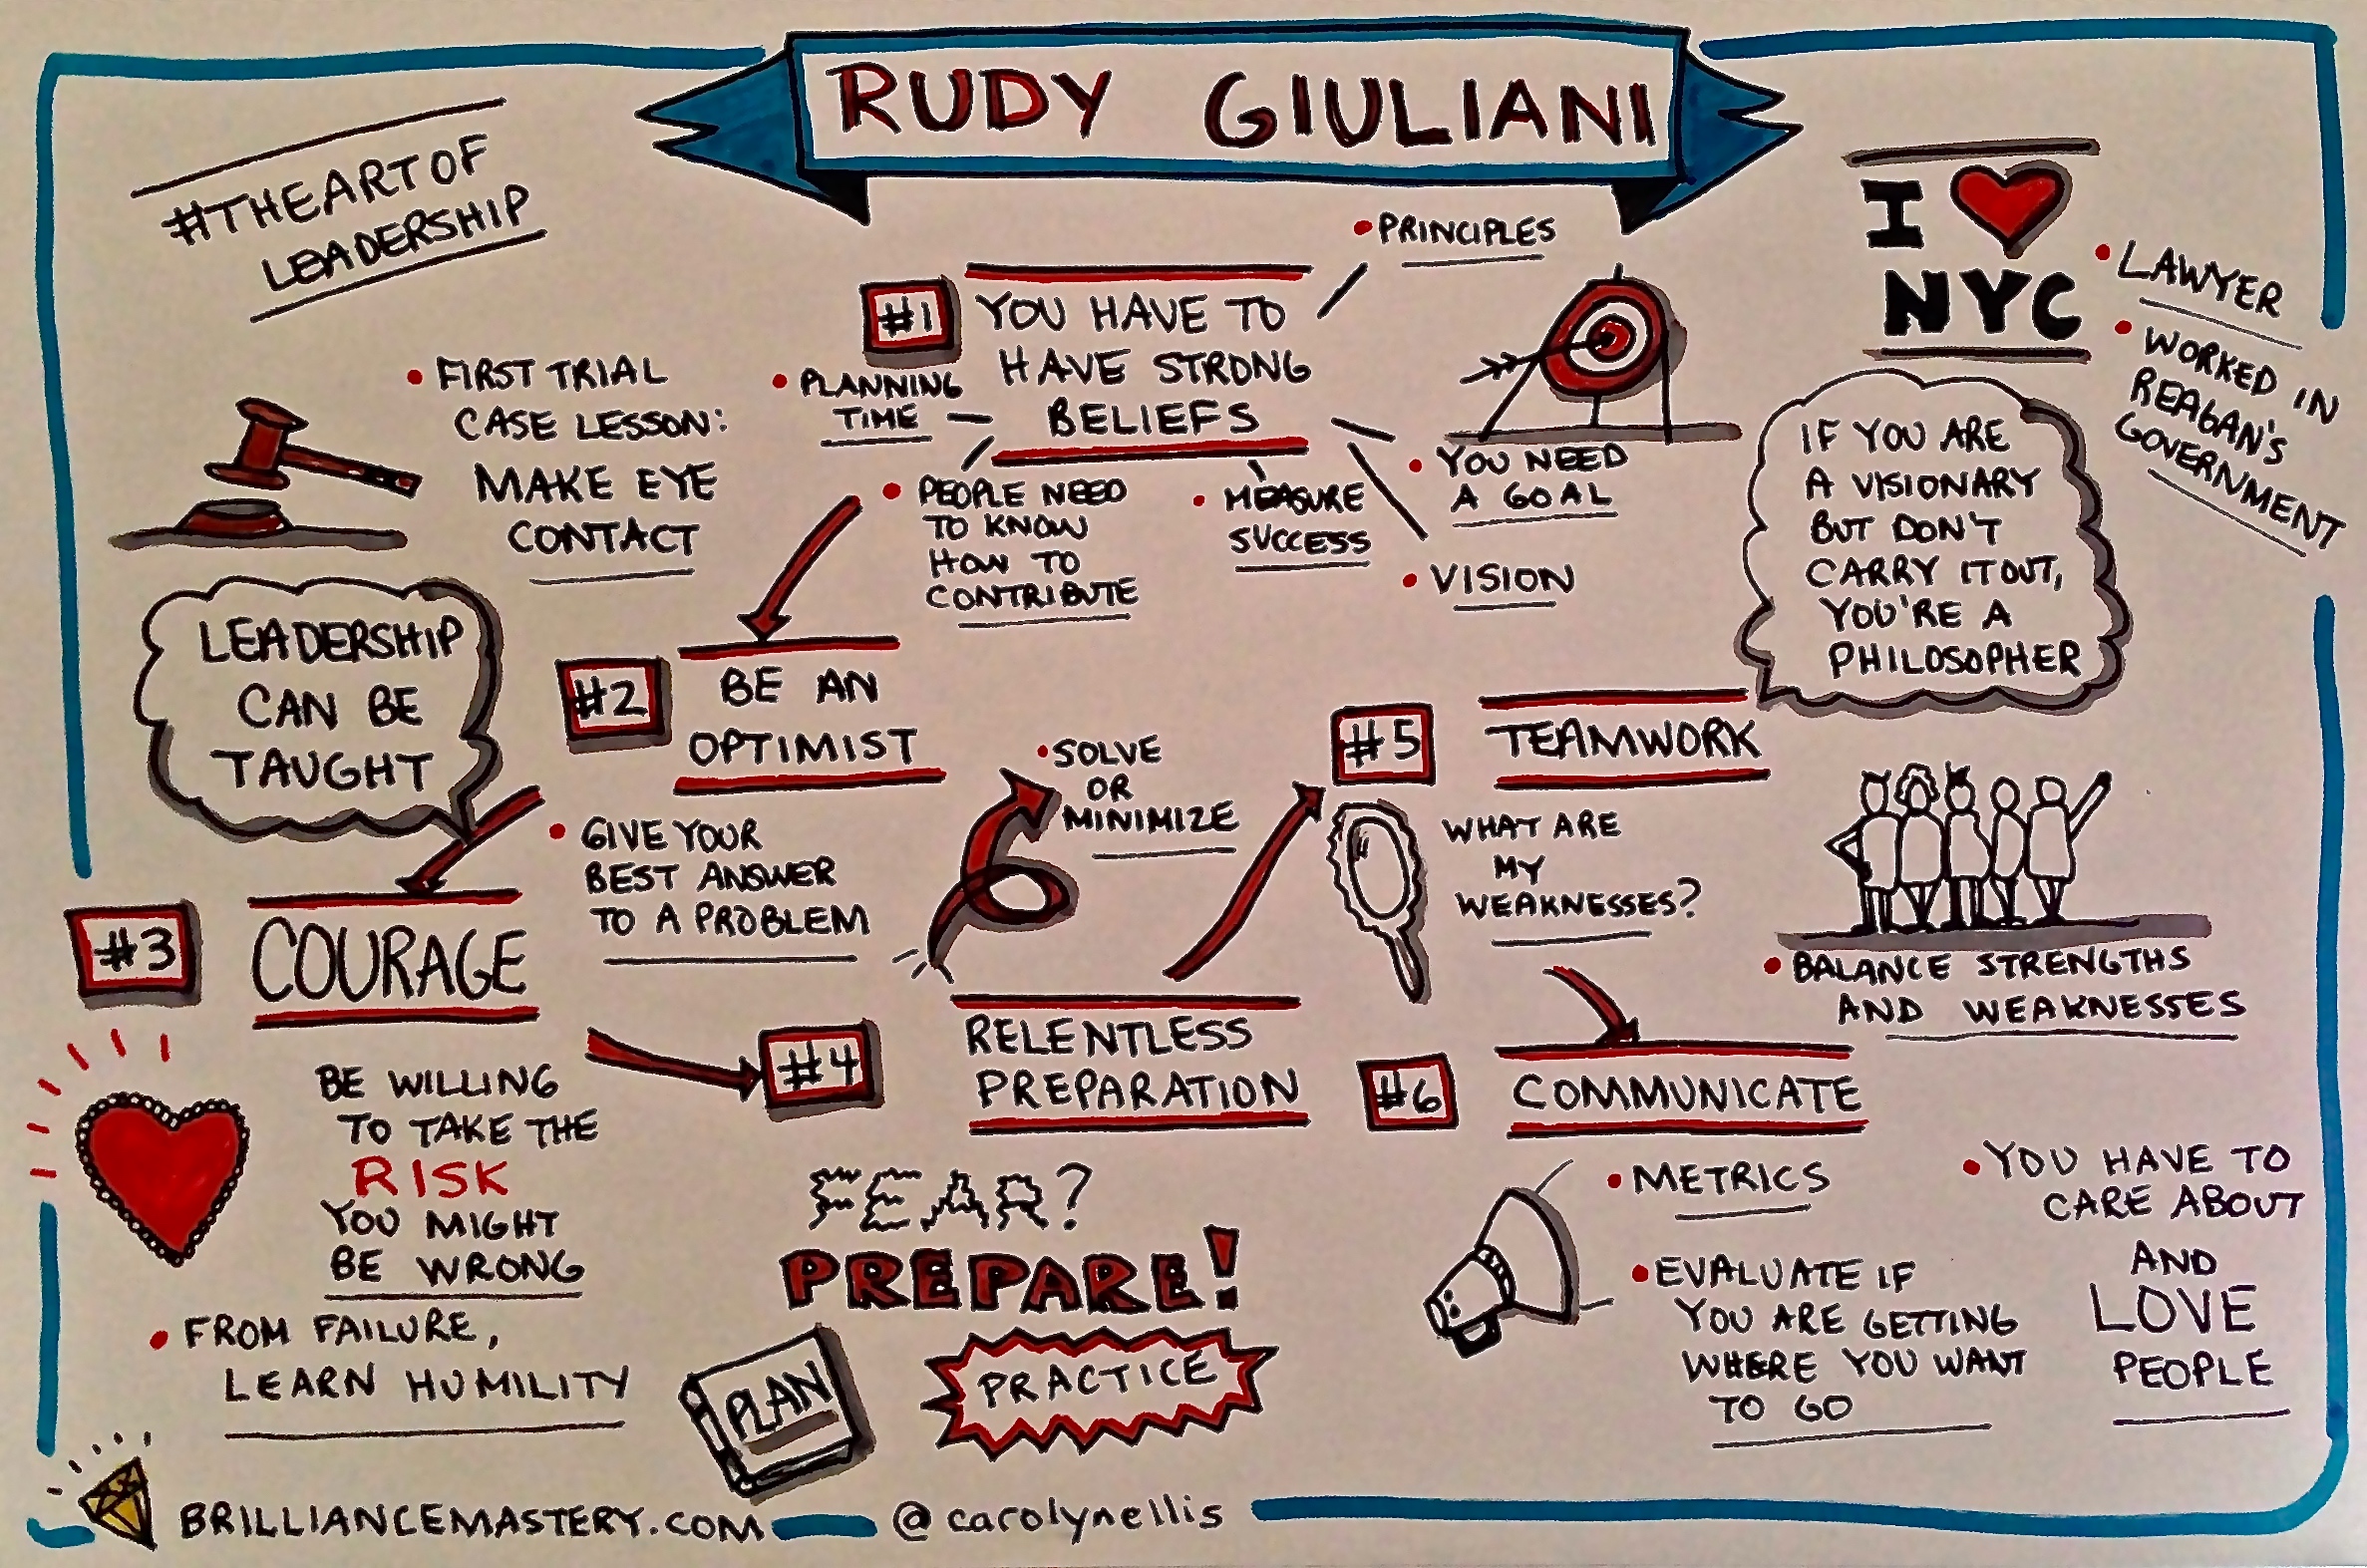 RUDY GIULIANI
#THEARTOF
LEADERSHIP
I
NYC
• LAWYER
• WORKED IN
REAGAN'S
GOVERNMENT
• FIRST TRIAL
CASE LESSON:
MAKE EYE
CONTACT
LEADERSHIP
CAN BE
TAUGHT
#1
YOU HAVE TO
HAVE STRONG
BELIEFS
• PRINCIPLES
• PLANNING
TIME
• PEOPLE NEED
TO KNOW
HOW TO
CONTRIBUTE
• MEASURE
SUCCESS
• YOU NEED
A GOAL
• VISION
IF YOU ARE
A VISIONARY
BUT DON'T
CARRY IT OUT,
YOU'RE A
PHILOSOPHER
#2
BE AN
OPTIMIST
• GIVE YOUR
BEST ANSWER
TO A PROBLEM
• SOLVE
OR
MINIMIZE
#3
COURAGE
BE WILLING
TO TAKE THE
RISK
YOU MIGHT
BE WRONG
• FROM FAILURE,
LEARN HUMILITY
#4
RELENTLESS
PREPARATION
FEAR?
PREPARE!
PLAN
PRACTICE
#5
TEAMWORK
WHAT ARE
MY
WEAKNESSES?
• BALANCE STRENGTHS
AND WEAKNESSES
#6
COMMUNICATE
• METRICS
• EVALUATE IF
YOU ARE GETTING
WHERE YOU WANT
TO GO
• YOU HAVE TO
CARE ABOUT
AND
LOVE
PEOPLE
BRILLIANCEMASTERY.COM
@carolynellis